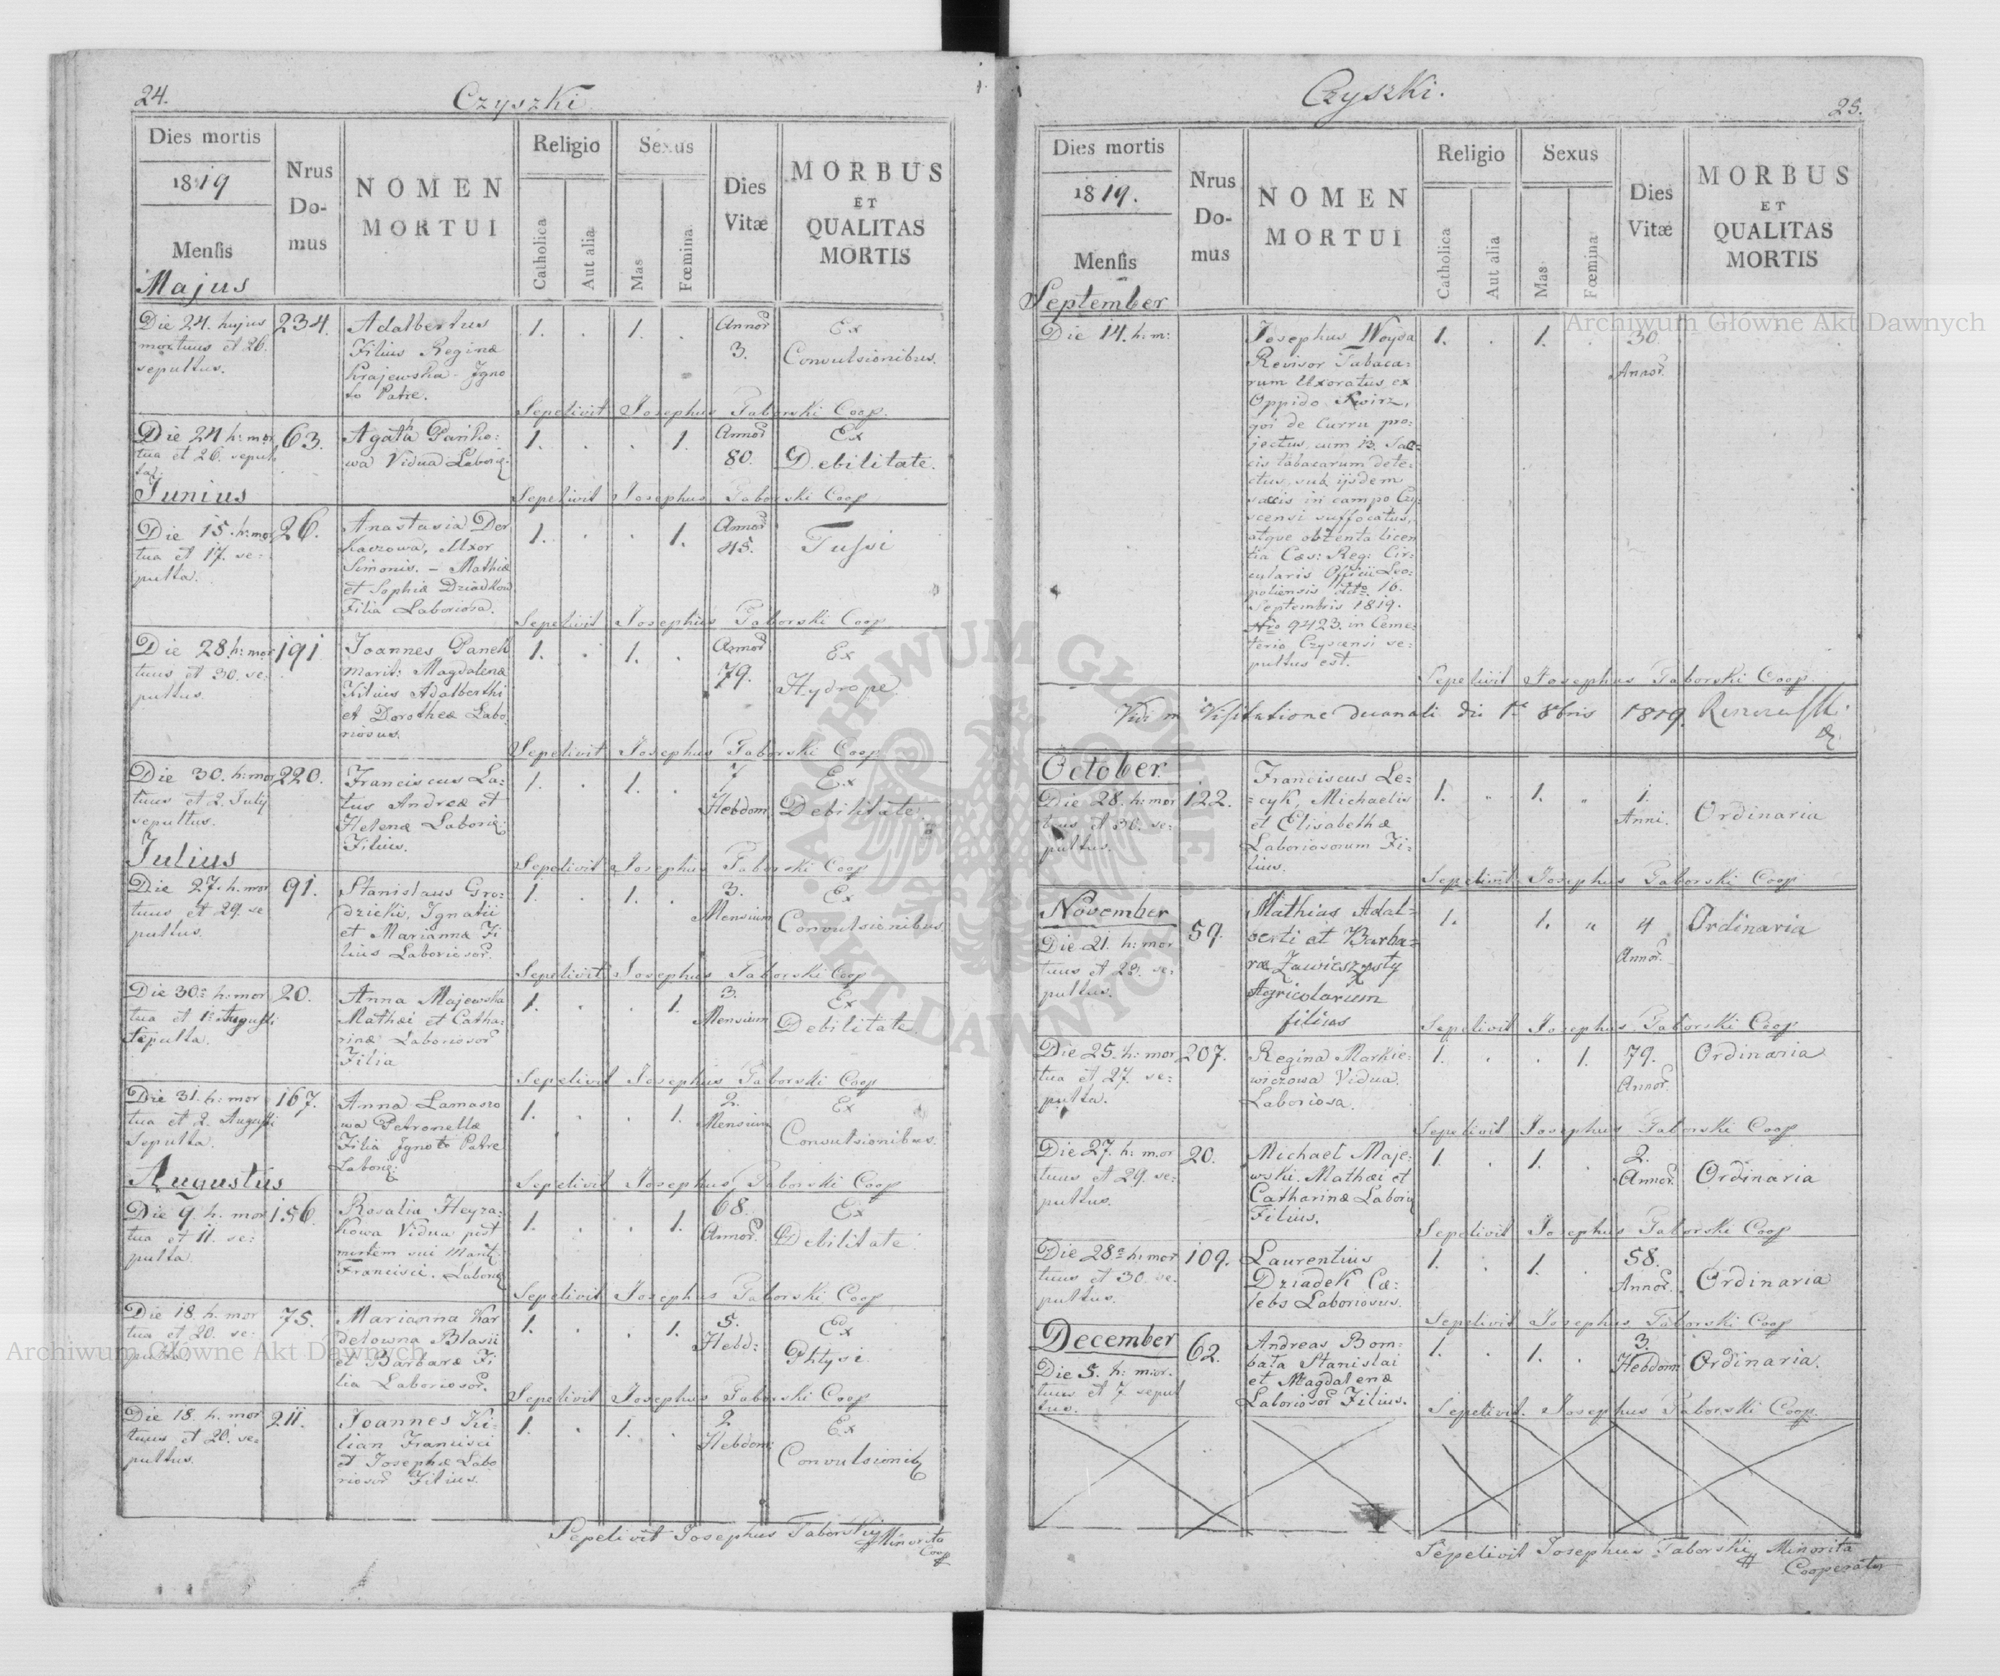 24.
Czyszki
Dies mortis
1819
Mensis
Majus
Nrus
Do-
mus
NOMEN
MORTUI
Religio
Catholica
Aut alia
Sexus
Mas
Fœmina
Dies
Vitæ
MORBUS
ET
QUALITAS
MORTIS
Die 24. hujus
mortuus et 26.
sepultus.
234.
Adalbertus
Filius Reginæ
Krajewska Igno
to Patre.
1. . 1. .
Annor
3.
Ex
Convulsionibus.
Sepelivit Josephus Taborski Coop.
Die 24 h: mor
tua et 26. sepul
ta.
63.
Agatha Pańko:
wa Vidua Labori:
1. . . 1.
Annor
80.
Ex
Debilitate.
Sepelivit Josephus Taborski Coop
Junius
Die 15. h: mor
tua et 17. se:
pulta.
26.
Anastasia Der
kaczowa, Uxor
Simonis. - Mathiæ
et Sophiæ Dziadkow
Filia Laboriosa.
1. . . 1.
Annor
45.
Tussi
Sepelivit Josephus Taborski Coop
Die 28. h: mor
tuus et 30. se
pultus.
191
Joannes Panek
marit: Magdalenæ
Filius Adalberthi
et Dorotheæ Labo
riosus.
1. . 1. .
Annor
79.
Ex
Hydrope
Sepelivit Josephus Taborski Coop
Die 30. h: mor
tuus et 2. July
sepultus.
220.
Franciscus La:
tus Andreæ et
Helenæ Labori:
Filius.
1. . 1. .
7
Hebdom
Ex
Debilitate.
Sepelivit Josephus Taborski Coop
Julius
Die 27. h. mor
tuus et 29. se
pultus.
91.
Stanislaus Gro:
dzicki, Ignatii
et Mariannæ Fi
lius Laboriosor.
1. . 1. .
3.
Mensium
Ex
Convulsionibus
Sepelivit Josephus Taborski Coop
Die 30. h: mor
tua et 1. Augusti
sepulta.
20.
Anna Majewska
Mathæi et Catha:
rinæ Laboriosor
Filia
1. . . 1.
3.
Mensium
Ex
Debilitate
Sepelivit Josephus Taborski Coop
Die 31. h: mor
tua et 2. Augusti
Sepulta.
167.
Anna Lamaszo
wa Petronellæ
Filia Ignoto Patre
Labori:
1. . . 1.
2.
Mensium
Ex
Convulsionibus.
Sepelivit Josephus Taborski Coop
Augustus
Die 9. h. mor
tua et 11. se:
pulta
156.
Rosalia Heyza:
kowa Vidua post
mortem sui Mariti
Francisci. Labori
1. . . 1.
68.
Annor.
Ex
Debilitate
Sepelivit Josephus Taborski Coop
Die 18. h. mor
tua et 20. se:
pulta.
75.
Marianna Kar
delowna Blasii
et Barbaræ Fi
lia Laboriosor.
1. . . 1.
5.
Hebd:
Ex
Phtysi
Sepelivit Josephus Taborski Coop
Die 18. h. mor
tuus et 20. se:
pultus.
211.
Joannes Ki:
lian Francisci
et Josephæ Labo
riosor Filius.
1. . 1. .
2
Hebdom:
Ex
Convulsionib
Sepelivit Josephus Taborski Minorita
Coop
Czyszki.
25.
Dies mortis
1819.
Mensis
September
Nrus
Do-
mus
NOMEN
MORTUI
Religio
Catholica
Aut alia
Sexus
Mas
Fœmina
Dies
Vitæ
MORBUS
ET
QUALITAS
MORTIS
Die 14. h: m:
Josephus Woyda
Revisor Tabaca:
rum Uxoratus, ex
Oppido Swirz,
qvi de Curru pro:
jectus, cum 13. Sac:
cis tabacarum dete:
ctus, sub ijsdem
saccis in campo Czy
scensi suffocatus,
atqve obtenta licen
tia Cæs: Reg: Cir:
cularis Officii Leo:
poliensis ddto 16.
Septembris 1819.
Nro 9423. in Ceme:
terio Czyscensi se:
pultus est.
1. . 1. .
30.
Annor.
Sepelivit Josephus Taborski Coop.
Vidi in Visitatione decanali die 1 8bris 1819.
October
Die 28. h: mor
tuus et 30. se:
pultus.
122.
Franciscus Le:
cyk, Michaelis
et Elisabethæ
Laboriosorum Fi:
lius.
1. " 1. "
1.
Anni.
Ordinaria
Sepelivit Josephus Taborski Coop
November
Die 21. h: mor
tuus et 23. se:
pultus.
59.
Mathias Adal=
berti et Barba=
ræ Zawieszysty
Agricolarum
filius
1. 1. "
4
Annor.
Ordinaria
Sepelivit Josephus Taborski Coop
Die 25. h: mor
tua et 27. se:
pulta.
207.
Regina Markie:
wiczowa Vidua
Laboriosa.
1. . . 1.
79.
Annor.
Ordinaria
Sepelivit Josephus Taborski Coop
Die 27. h: mor
tuus et 29. se:
pultus.
20.
Michael Maje:
wski. Mathæi et
Catharinæ Labori
Filius.
1. . 1. .
2.
Annor.
Ordinaria
Sepelivit Josephus Taborski Coop
Die 28. h: mor
tuus et 30. se.
pultus.
109.
Laurentius
Dziadek Cæ:
lebs Laboriosus.
1. . 1. .
58.
Annor.
Ordinaria
Sepelivit Josephus Taborski Coop
December
Die 5. h: mor.
tuus et 7 sepul
tus.
62.
Andreas Bom:
bała Stanislai
et Magdalenæ
Laboriosor Filius.
1. . 1. .
3.
Hebdom
Ordinaria.
Sepelivit. Josephus Taborski Coop.
Sepelivit Josephus Taborski Minorita
Cooperator
Archiwum Główne Akt Dawnych
Archiwum Główne Akt Dawnych
ARCHIWUM GŁÓWNE AKT DAWNYCH